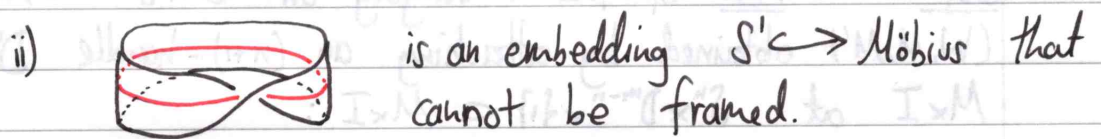 ii) is an embedding S¹ ↪ Möbius that
cannot be framed.